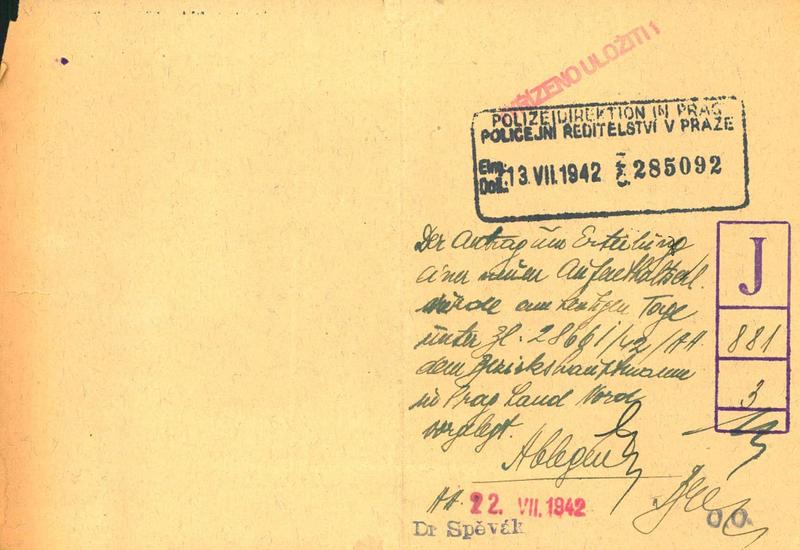 ŘÍZENO ULOŽITI!
POLIZEIDIREKTION IN PRAG
POLICEJNÍ ŘEDITELSTVÍ V PRAZE
13.VII.1942 285092
Došl.:
Der Antrag um Erteilung
einer neuen
wurde am heutigen Tage
unter Zl. 2861/42/AA
dem Bezirkshauptmanne
in Prag Land Nord
vorgelegt.
Ablegen
J
881
3
AA 22. VII. 1942
Dr Spěvák
O.O.